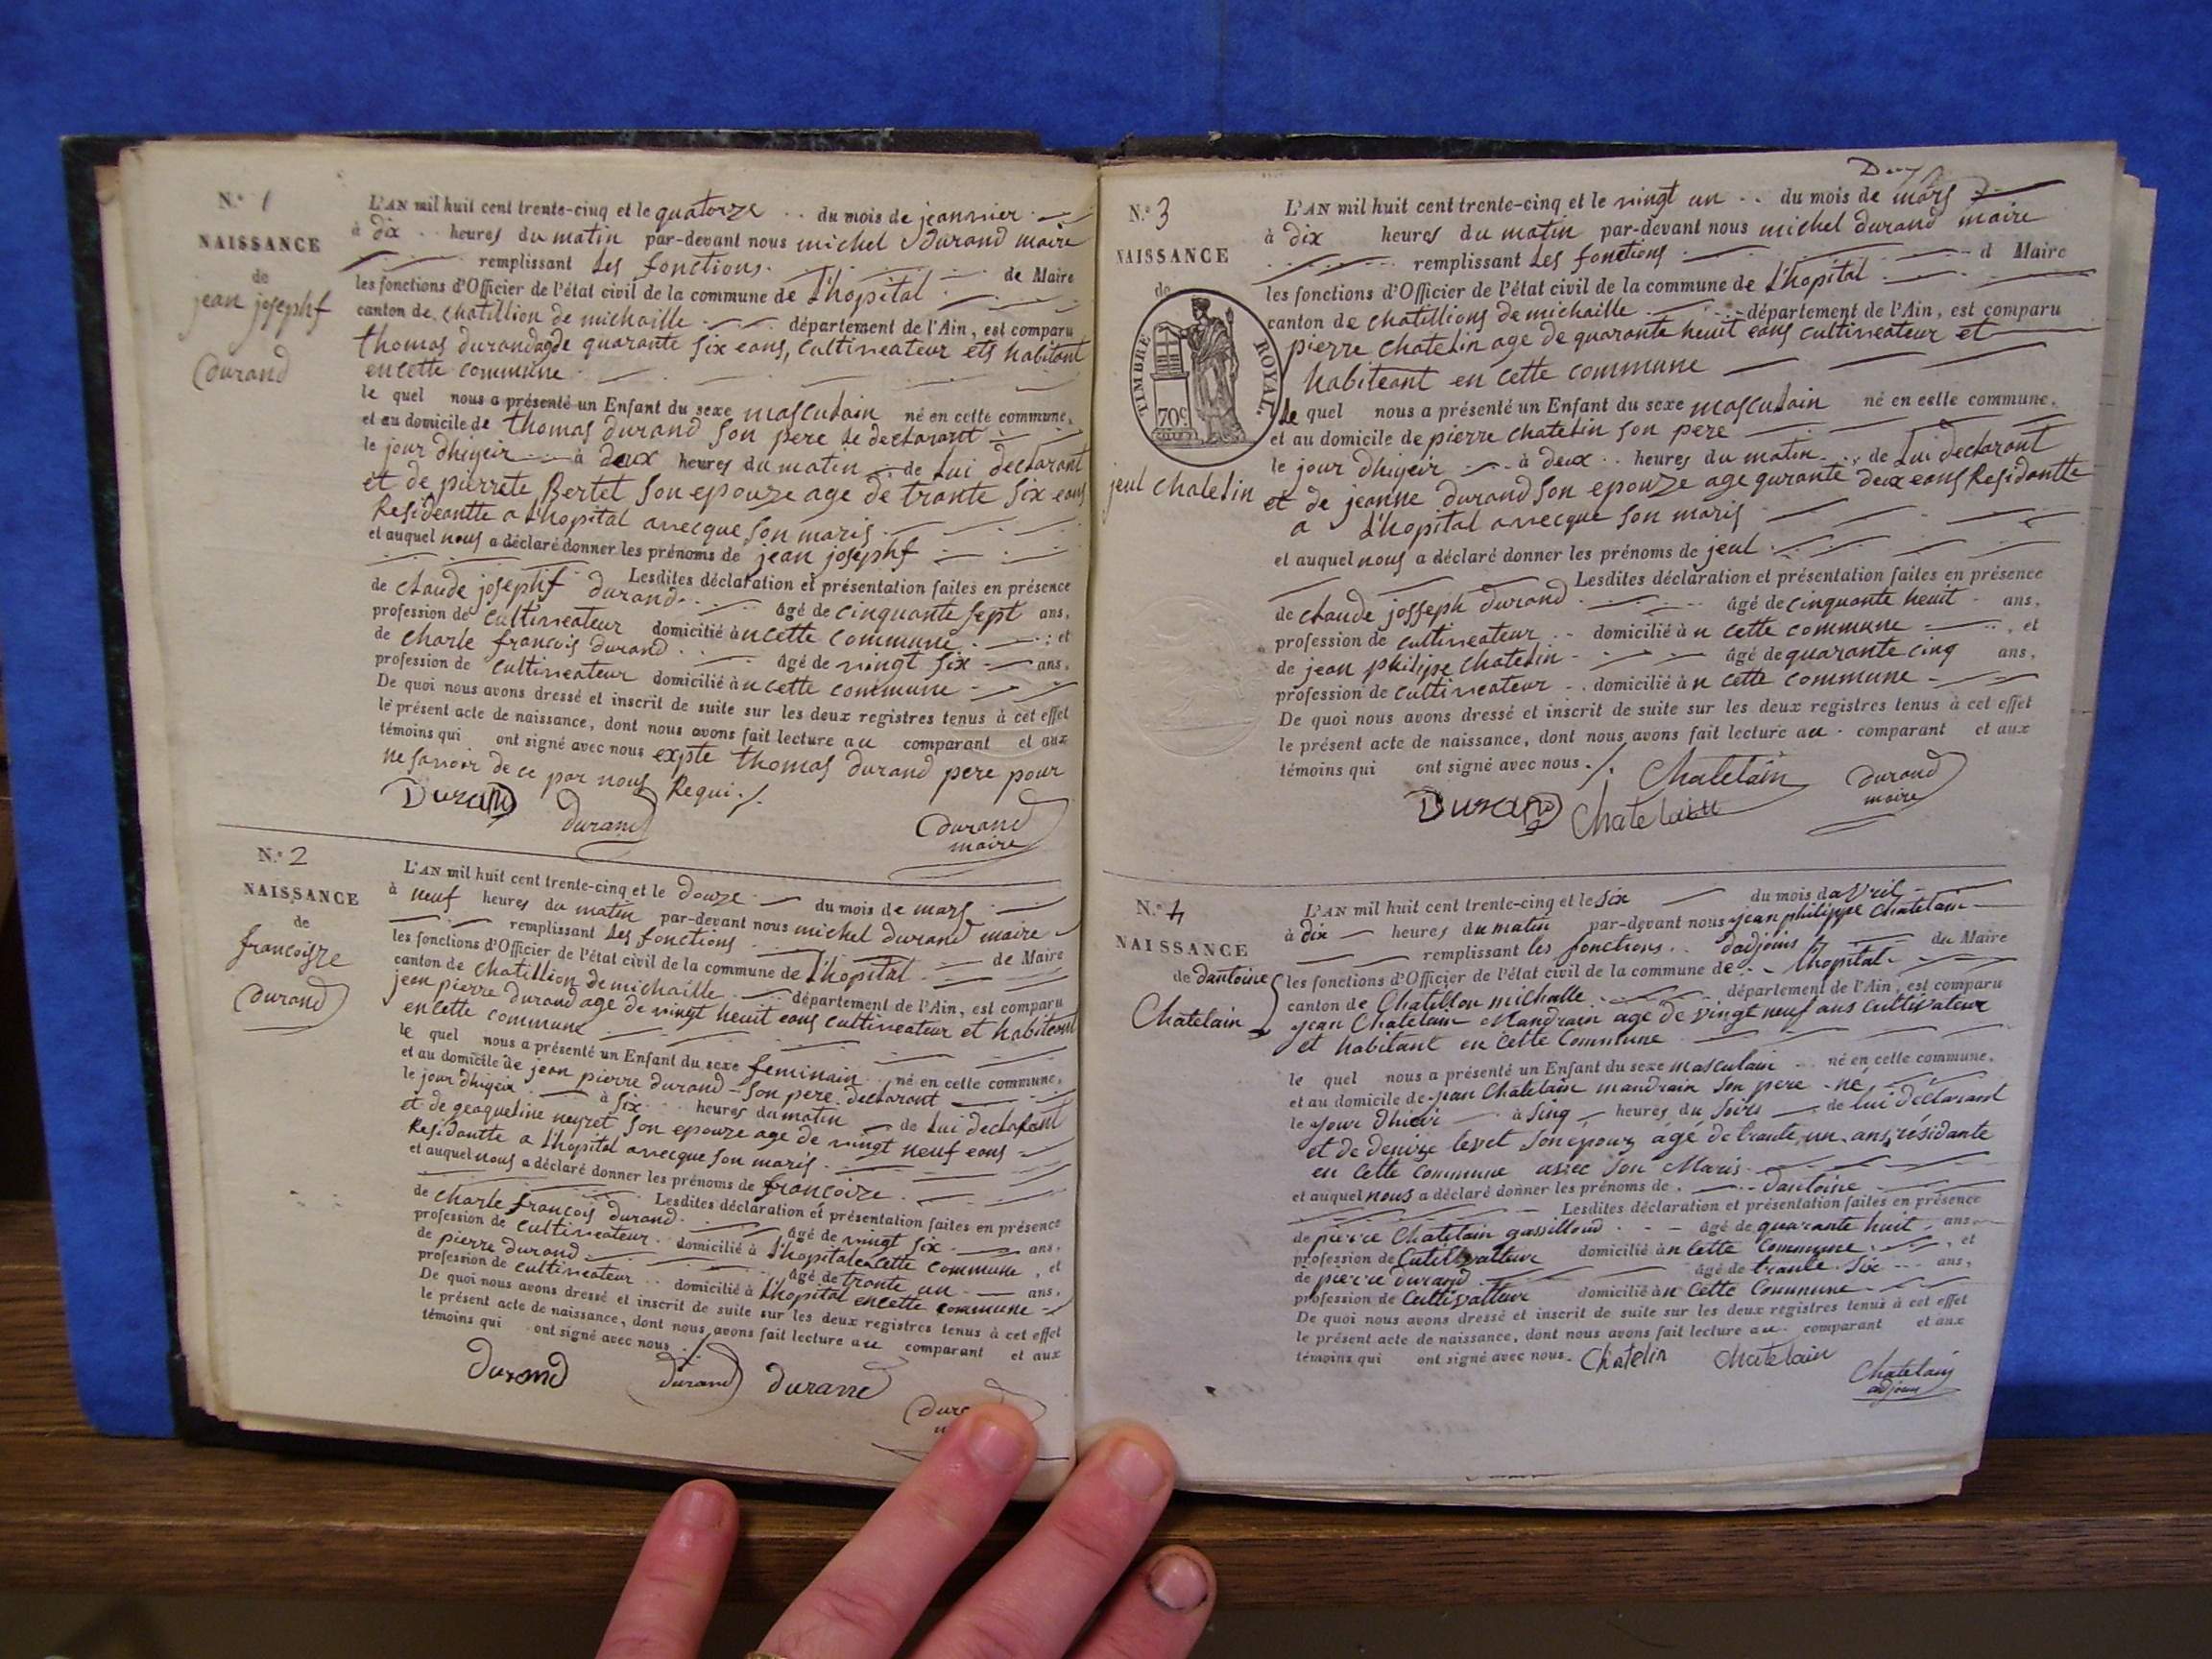 N.° 1
NAISSANCE
de
jean josephf
Durand
L'AN mil huit cent trente-cinq et le quatorze du mois de jeannvier
à dix heures du matin par-devant nous michel Durand maire
remplissant Les fonctions de Maire
les fonctions d'Officier de l'état civil de la commune de L'hopital
canton de chatillion de michaille département de l'Ain, est comparu
thomas durand agé de quarante six eans, Cultiveateur ets habitant
encette commune
le quel nous a présenté un Enfant du sexe masculain né en cette commune,
et au domicile de thomas durand son pere Le declarant
le jour dhiyeir à deux heures du matin de Lui declarant
et de pierrete Bertet son epouze age de trante six eans
Resideantte a L'hopital avecque son maris
et auquel nous a déclaré donner les prénoms de jean josephf
Lesdites déclaration et présentation faites en présence
de claude josephf durand âgé de cinquante sept ans,
profession de cultiveateur domicilié à n cette commune ; et
de charle francois durand âgé de vingt six ans,
profession de cultiveateur domicilié à n cette commune
De quoi nous avons dressé et inscrit de suite sur les deux registres tenus à cet effet
le présent acte de naissance, dont nous avons fait lecture au comparant et aux
témoins qui ont signé avec nous expte thomas durand pere pour
ne savoir de ce par nous Requi ./.
Durand durand durand
maire
N.° 2
NAISSANCE
de
francoisre
durand
L'AN mil huit cent trente-cinq et le douze du mois de mars
à neuf heures du matin par-devant nous michel durand maire
remplissant Les fonctions de Maire
les fonctions d'Officier de l'état civil de la commune de L'hopital
canton de chatillion de michaille département de l'Ain, est comparu
jean pierre durand age de vingt heuit eans cultiveateur et habiteant
encette commune
le quel nous a présenté un Enfant du sexe feminain né en cette commune,
et au domicile de jean pierre durand son pere declarant
le jour dhiyeir à six heures du matin de Lui declarant
et de geaqueline neyret son epouze age de vingt neuf eans
Residantte a L'hopital avecque son maris
et auquel nous a déclaré donner les prénoms de francoire
Lesdites déclaration et présentation faites en présence
de charle francois durand âgé de vingt six ans,
profession de cultiveateur domicilié à L'hopital encette commune, et
de pierre durand âgé de trante un ans,
profession de cultiveateur domicilié à L'hopital encette commune
De quoi nous avons dressé et inscrit de suite sur les deux registres tenus à cet effet
le présent acte de naissance, dont nous avons fait lecture au comparant et aux
témoins qui ont signé avec nous ./.
durand durand durand
N.° 3
NAISSANCE
de
TIMBRE ROYAL.
70c.
jeul chatelin
L'AN mil huit cent trente-cinq et le vingt un du mois de mars
à dix heures du matin par-devant nous michel durand maire
remplissant Les fonctions d Maire
les fonctions d'Officier de l'état civil de la commune de L'hopital
canton de chatillions de michaille département de l'Ain, est comparu
pierre chatelin age de quarante heuit eans cultiveateur et
habiteant en cette commune
le quel nous a présenté un Enfant du sexe masculain né en cette commune,
et au domicile de pierre chatelin son pere
le jour dhiyeir à deux heures du matin de Lui declarant
et de jeanne durand son epouze age qurante deux eans Residantte
a L'hopital avecque son maris
et auquel nous a déclaré donner les prénoms de jeul
Lesdites déclaration et présentation faites en présence
de claude josseph durand âgé de cinquante heuit ans,
profession de cultiveateur domicilié à n cette commune, et
de jean philippe chatelin âgé de quarante cinq ans,
profession de cultiveateur domicilié à n cette commune
De quoi nous avons dressé et inscrit de suite sur les deux registres tenus à cet effet
le présent acte de naissance, dont nous avons fait lecture au comparant et aux
témoins qui ont signé avec nous ./. Chatelain durand
maire
Durand Chatelain
N.° 4
NAISSANCE
de dantoine
Chatelain
L'AN mil huit cent trente-cinq et le six du mois davril
à dix heures du matin par-devant nous jean philippe Chatelain
remplissant les fonctions dadjoins du Maire
les fonctions d'Officier de l'état civil de la commune de Lhopital
canton de Chatillon michalle département de l'Ain, est comparu
jean Chatelain Mandrain age de vingt neuf ans cultivateur
et habitant en cette Commune
le quel nous a présenté un Enfant du sexe masculain né en cette commune,
et au domicile de jean Chatelain mandrain son pere né
le jour dhieir à sinq heures du soirs de lui déclarant
et de denize levet son épouz agé de trante un ans résidante
en cette commune avec son Maris
et auquel nous a déclaré donner les prénoms de dantoine
Lesdites déclaration et présentation faites en présence
de pierre Chatelain gassilloud âgé de quarante huit ans,
profession de Cultivatteur domicilié à n cette Commune, et
de pierre durand âgé de trante six ans,
profession de Cultivatteur domicilié à n Cette Commune
De quoi nous avons dressé et inscrit de suite sur les deux registres tenus à cet effet
le présent acte de naissance, dont nous avons fait lecture au comparant et aux
témoins qui ont signé avec nous. Chatelin Chatelain
Chatelain